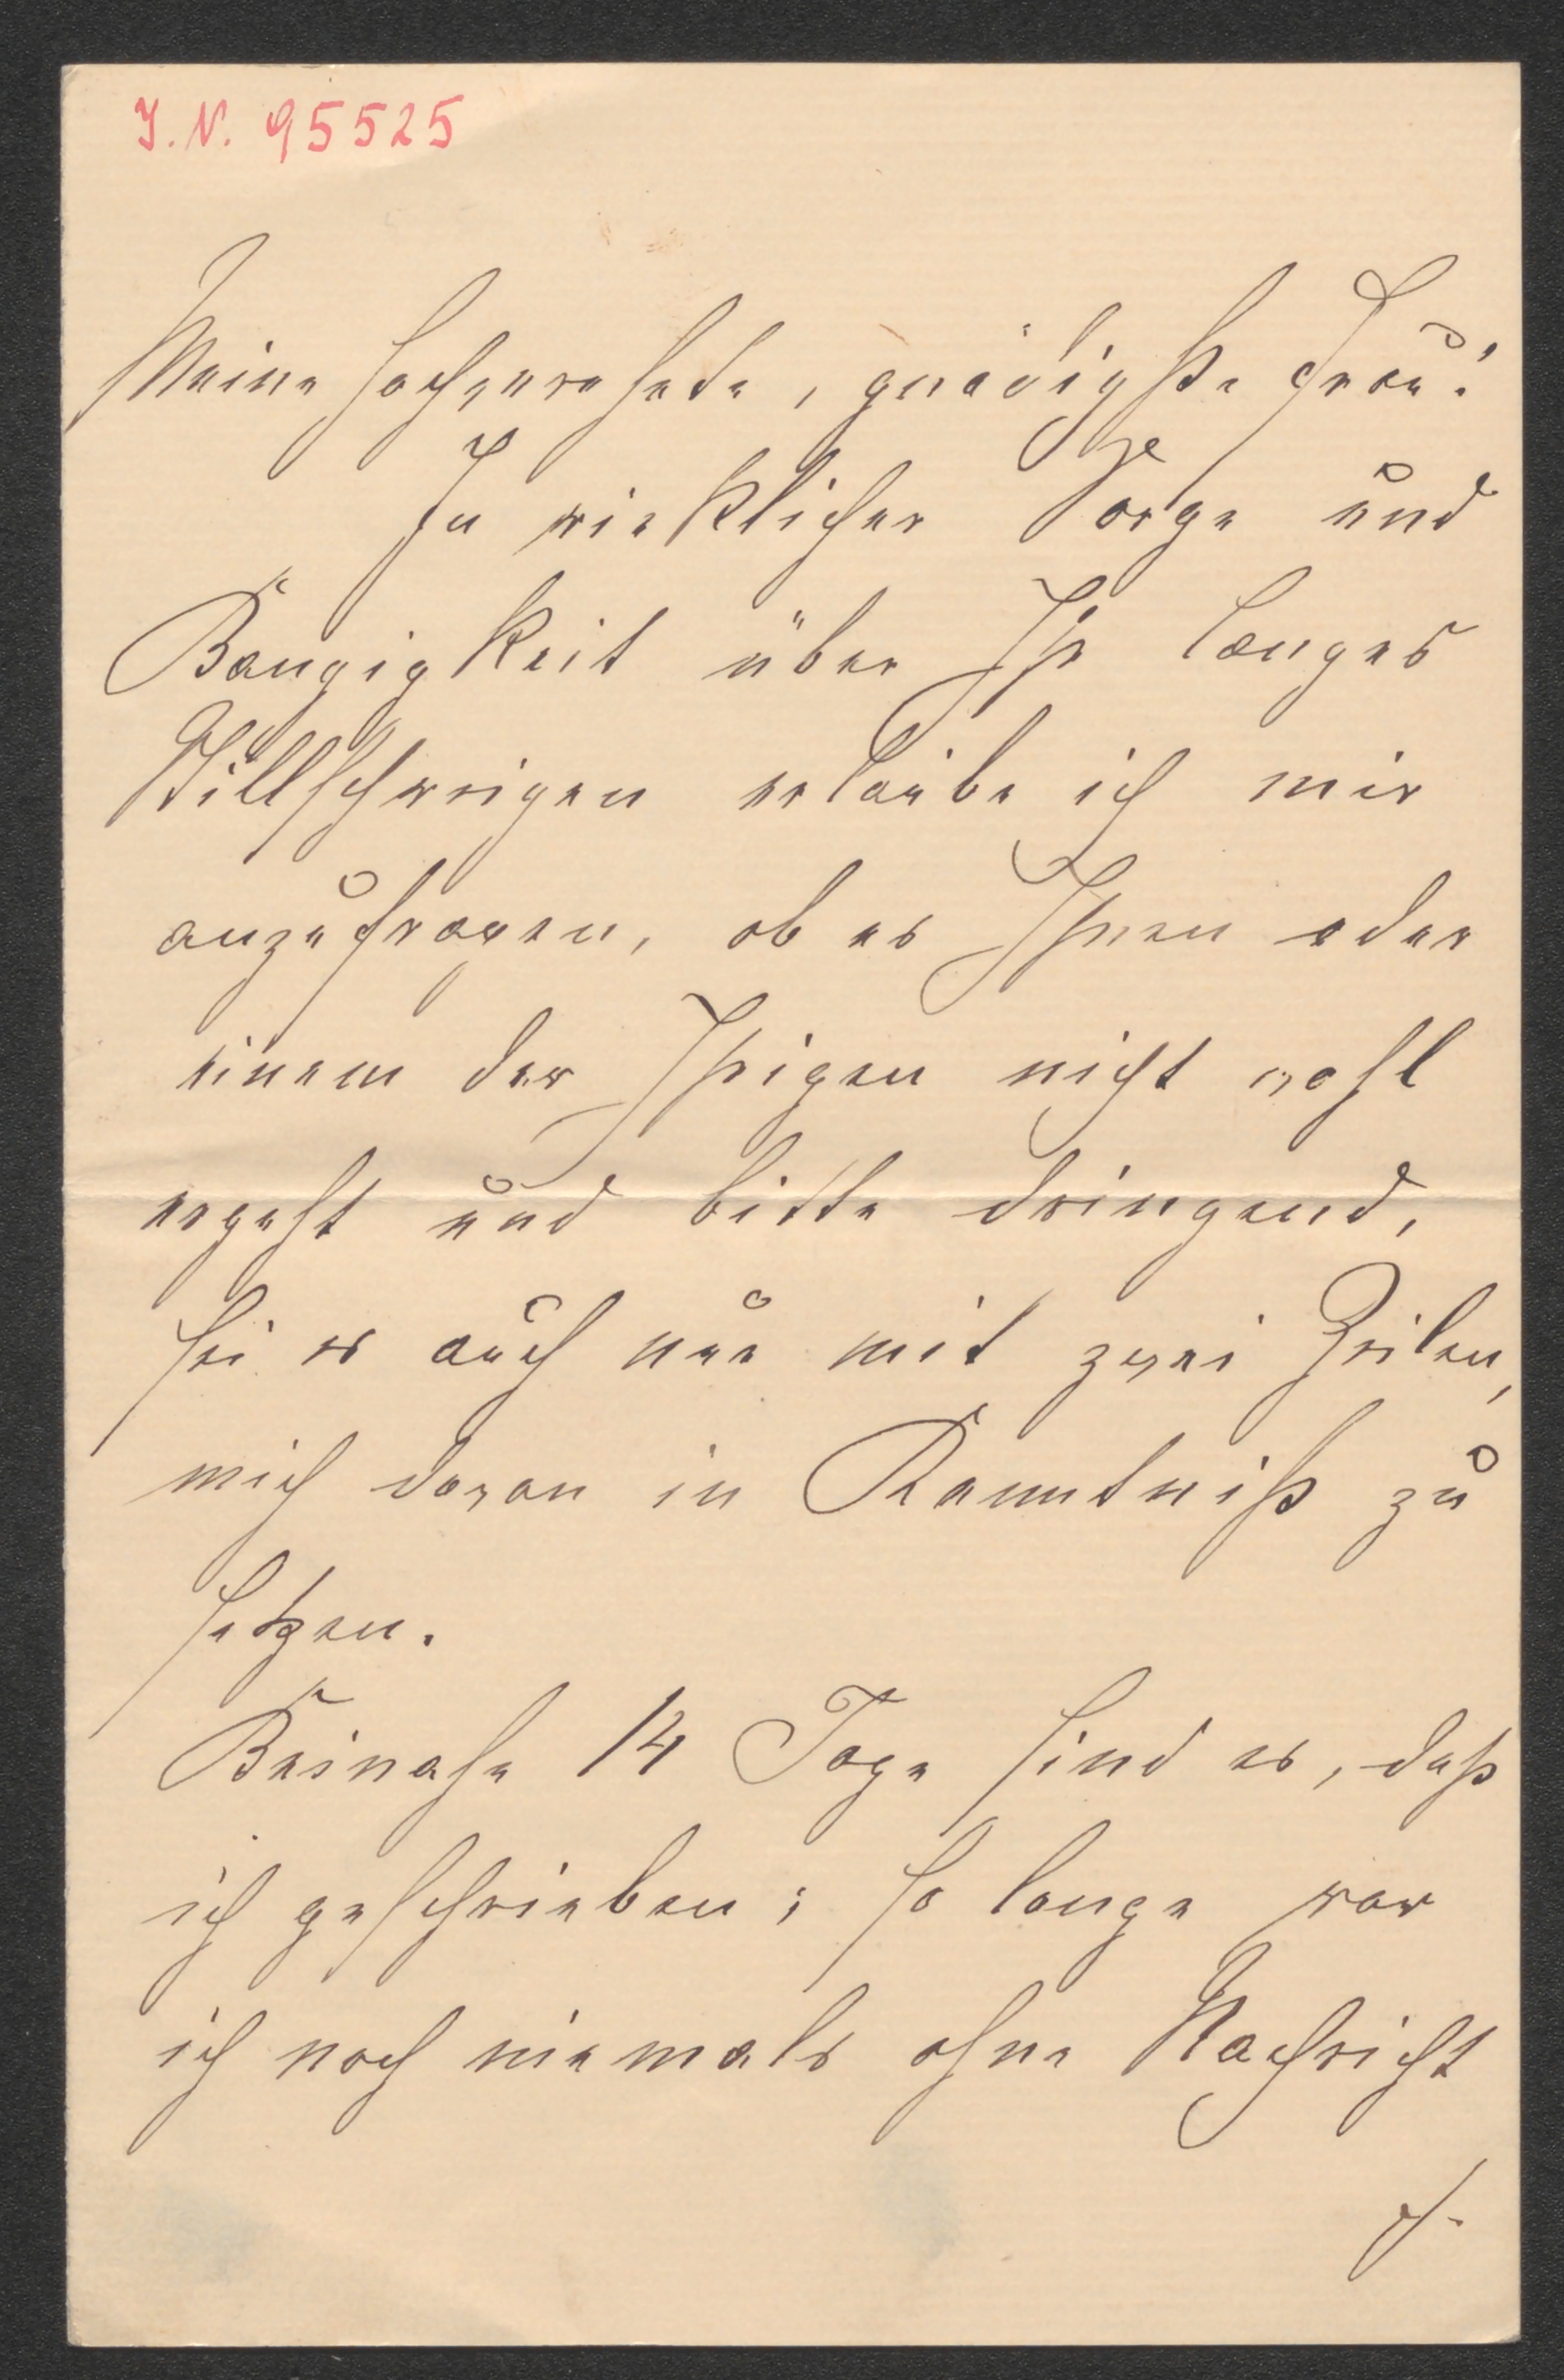 I. N. 95525
Meine hochverehrte, gnädigste Frau!
In wirklicher Sorge und
Bangigkeit über Ihr langes
Stillschweigen erlaube ich mir
anzufragen, ob es Ihnen oder
einem der Ihrigen nicht wohl
ergeht und bitte dringend,
sei es auch nur mit zwei Zeilen,
mich davon in Kenntniß zu
setzen.
Beinahe 14 Tage sind es, daß
ich geschrieben; so lange war
ich noch niemals ohne Nachricht